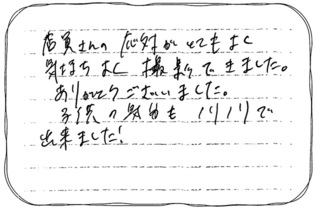 店員さんの応対がとてもよく
気持ちよく撮影できました。
ありがとうございました。
子供の気分もノリノリで
出来ました!